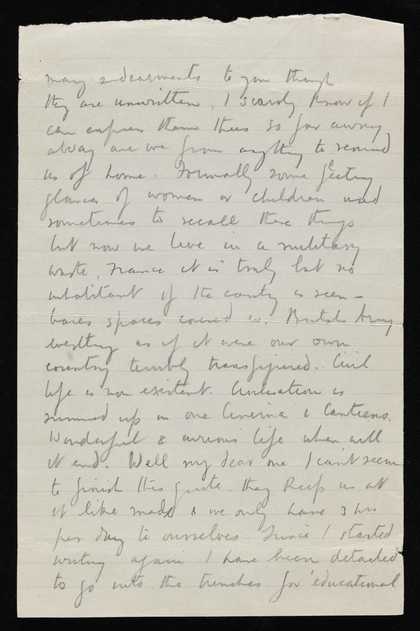 many endearments to you though
they are unwritten, I scarcely know if I
can express them thus so far away
alway are we from anything to remind
us of home. Formally some fleeting
glances of women or children used
sometimes to recall these things
but now we live in a military
waste, France it is truly but no
inhabitant of the country is seen -
bares spaces covered in British Army
everything as if it were our own
country terribly transfigured. Civil
life is non existent. Civilisation is
summed up in one Cinema & Canteens.
Wonderful & curious life when will
it end. Well my dear one I can't seem
to finish this quite they keep us at
it like mad & we only have 3 hrs
per day to ourselves Since I started
writing again I have been detached
to go into the trenches for 'educational